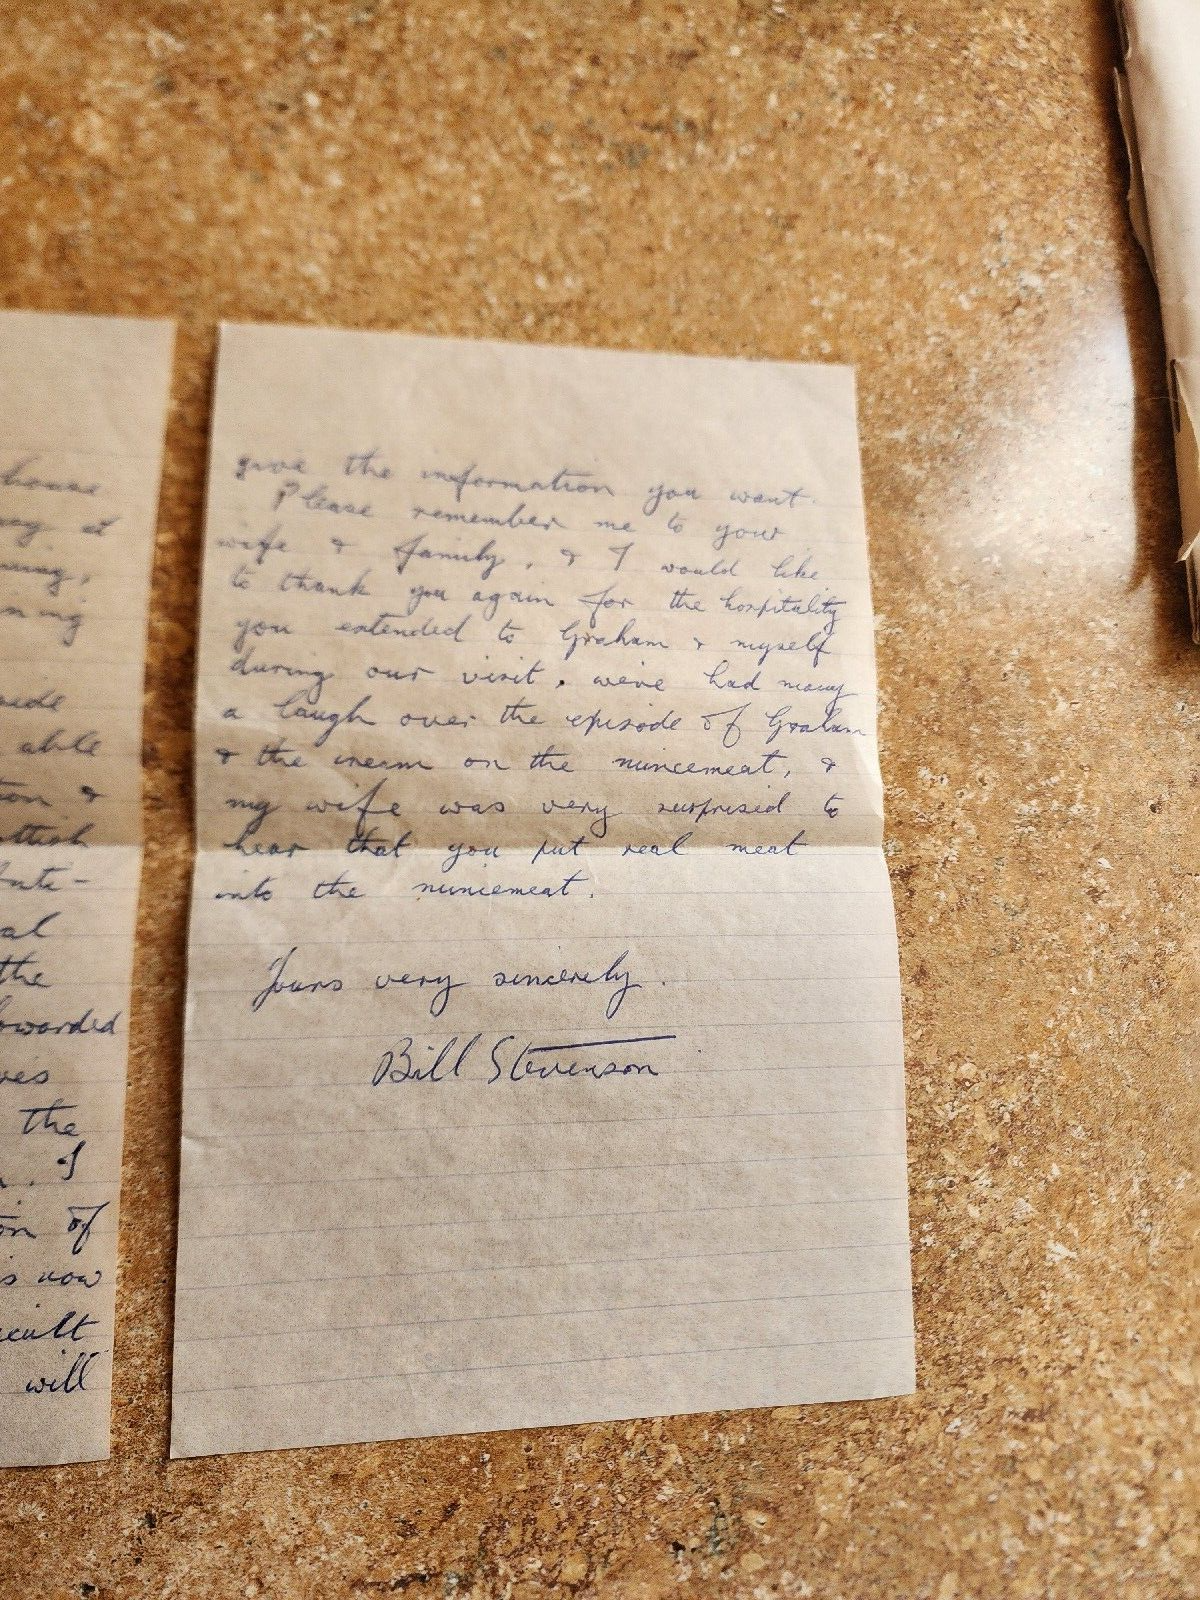 house
at
ning,
ning
side
able
tion &
ottish
Anti-
al
the
forwarded
ves
the
. I
on of
is now
icult
will
give the information you want.
Please remember me to your
wife & family, & I would like
to thank you again for the hospitality
you extended to Graham & myself
during our visit. we've had many
a laugh over the episode of Graham
& the cream on the mincemeat, &
my wife was very surprised to
hear that you put real meat
into the mincemeat.
Yours very sincerely.
Bill Stevenson